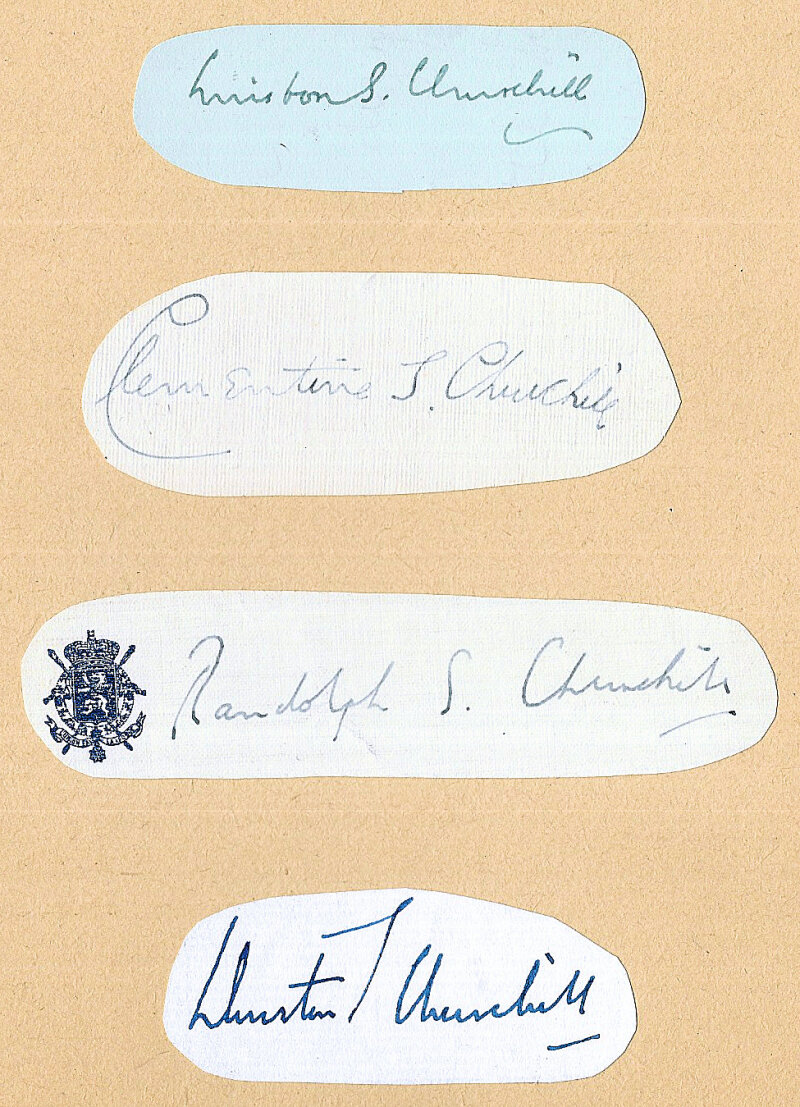 Winston S. Churchill
Clementine S. Churchill
Randolph S. Churchill
Winston S Churchill